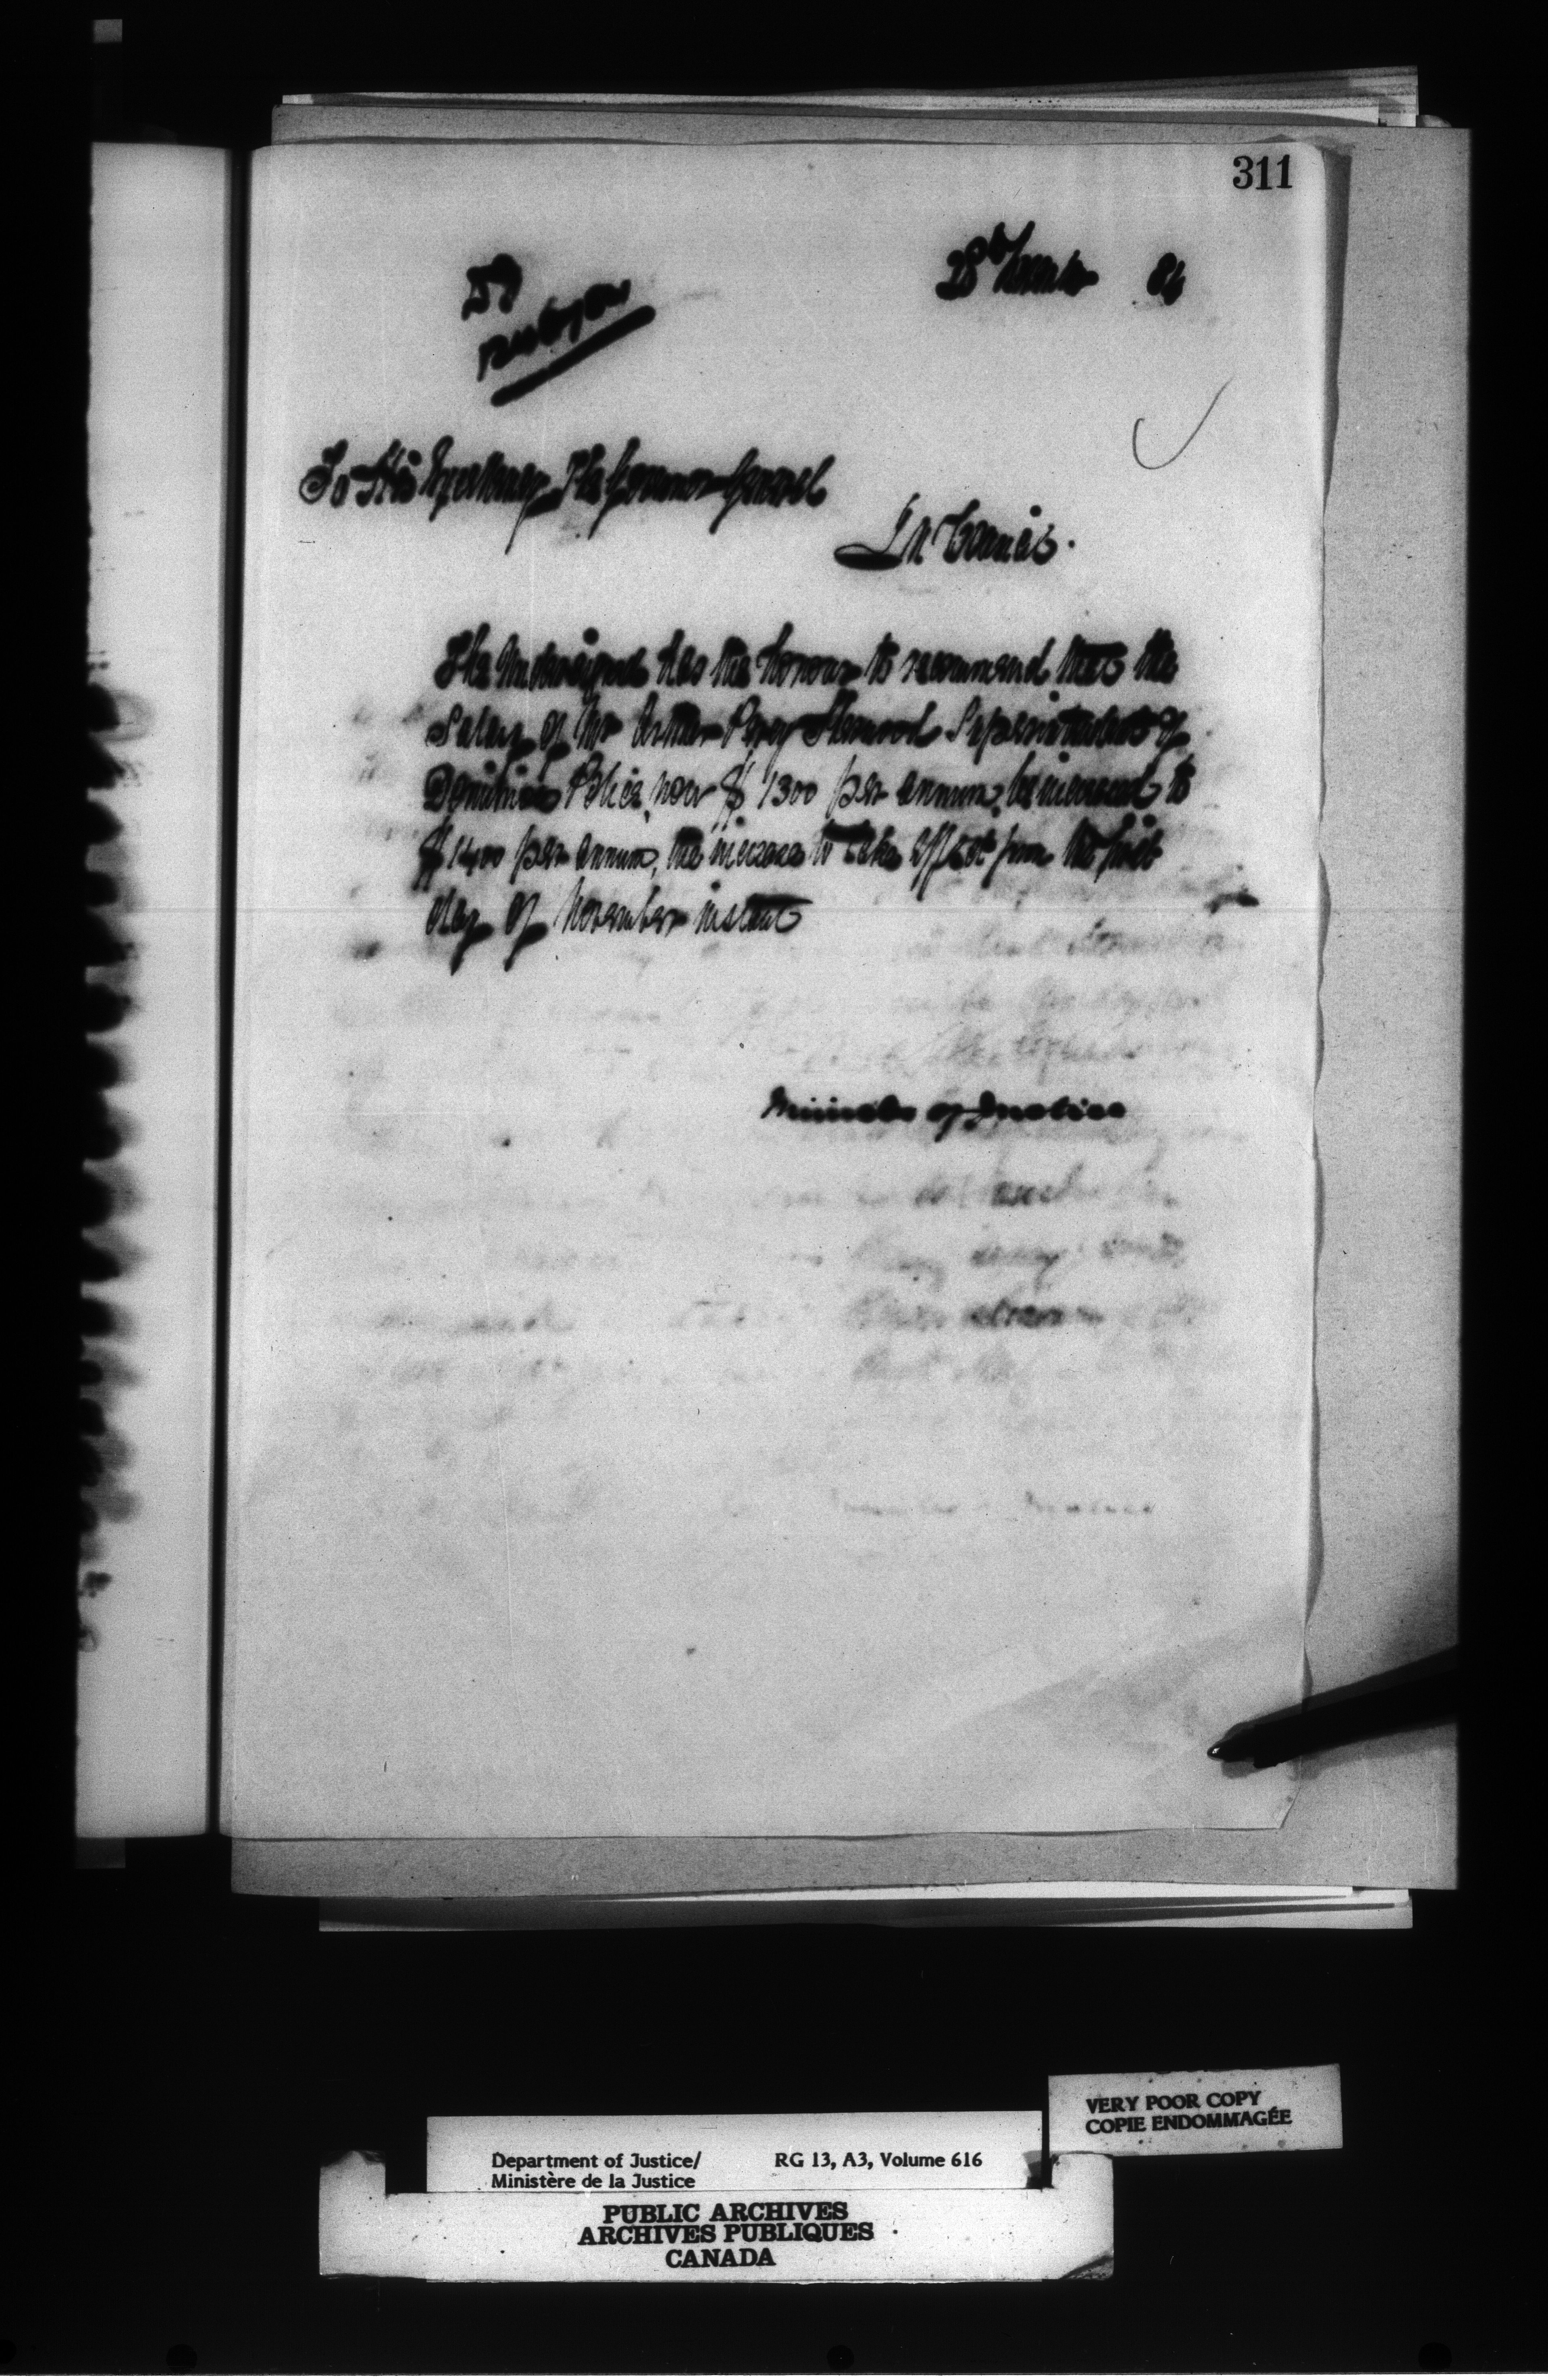 311
28th November 86
To His Excellency The Governor General
In Council.
The Undersigned has the honour to recommend that the
Salary of Mr Arthur Percy Sherwood Superintendent of
Dominion Police, now $1300 per annum, be increased to
$1400 per annum, the increase to take effect from the first
day of November instant
Minister of Justice
VERY POOR COPY
COPIE ENDOMMAGÉE
Department of Justice/ RG 13, A3, Volume 616
Ministère de la Justice
PUBLIC ARCHIVES
ARCHIVES PUBLIQUES
CANADA